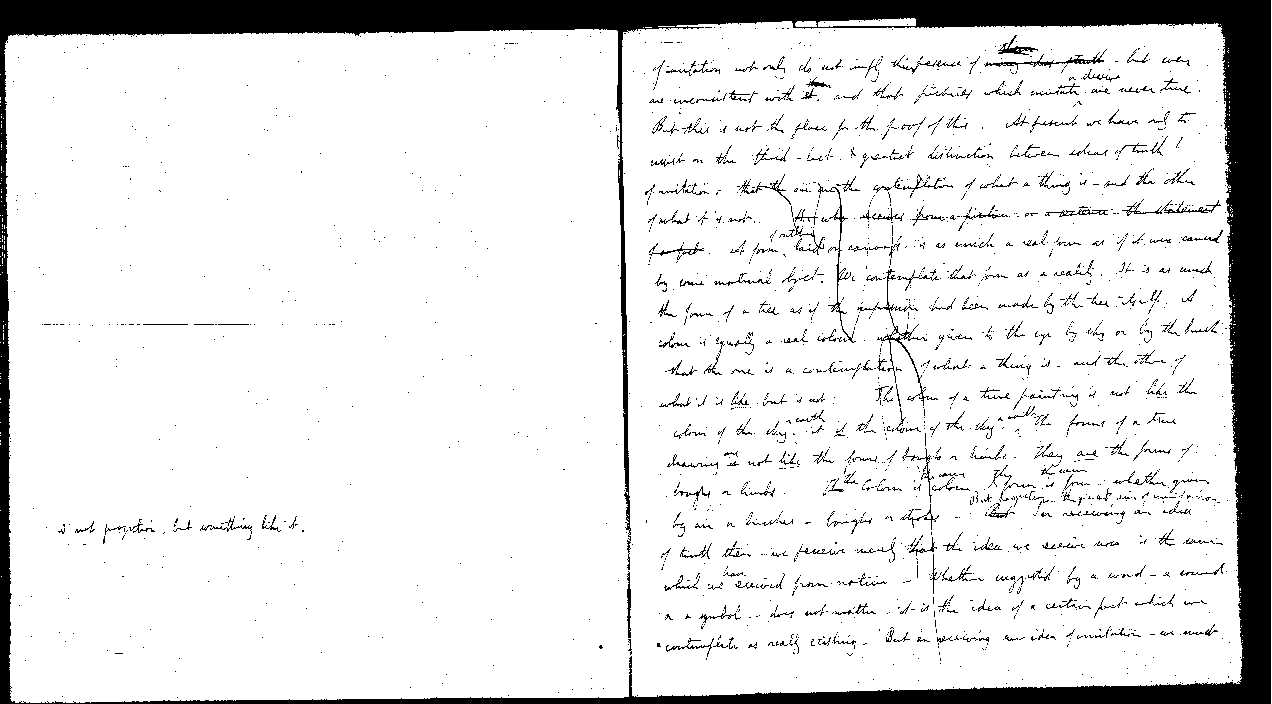 is not projection, but something like it.
them
of imitation not only do not imply the presence of using ideas of truth - but even
or deceive
are inconsistent with it them. and that pictures which imitate are never true.
But this is not the place for the proof of this. At present we have only to
insist on the third - last & greatest distinction between ideas of truth &
of imitation; that the one is the contemplation of what a thing is - and the other
of what it is not. He who receives from a picture or a sentence the statement
of a fact. A form, of outline laid on canvass is as much a real form as if it was caused
by some material object. We contemplate that form as a reality. It is as much
the form of a tree as if the impression had been made by the tree itself. A
colour is equally a real colour whether given to the eye by sky or by the brush
that the one is a contemplation of what a thing is - and the other of
what it is like but is not: The colour of a true painting is not like the
colour of the sky & earth it is the colour of the sky & earth the forms of a true
drawing are not like the forms of boughs or limbs. They are the forms of
boughs or limbs. The colour is the same colour, the form is the same form - whether given
But
by air or brushes - boughs or strokes - in receiving an idea
of truth then - we perceive merely that the idea we receive now is the same
which we have received from nature - Whether suggested by a word - a sound
or a symbol - does not matter - it is the idea of a certain fact which we
contemplate as really existing. But in receiving an idea of imitation - we must